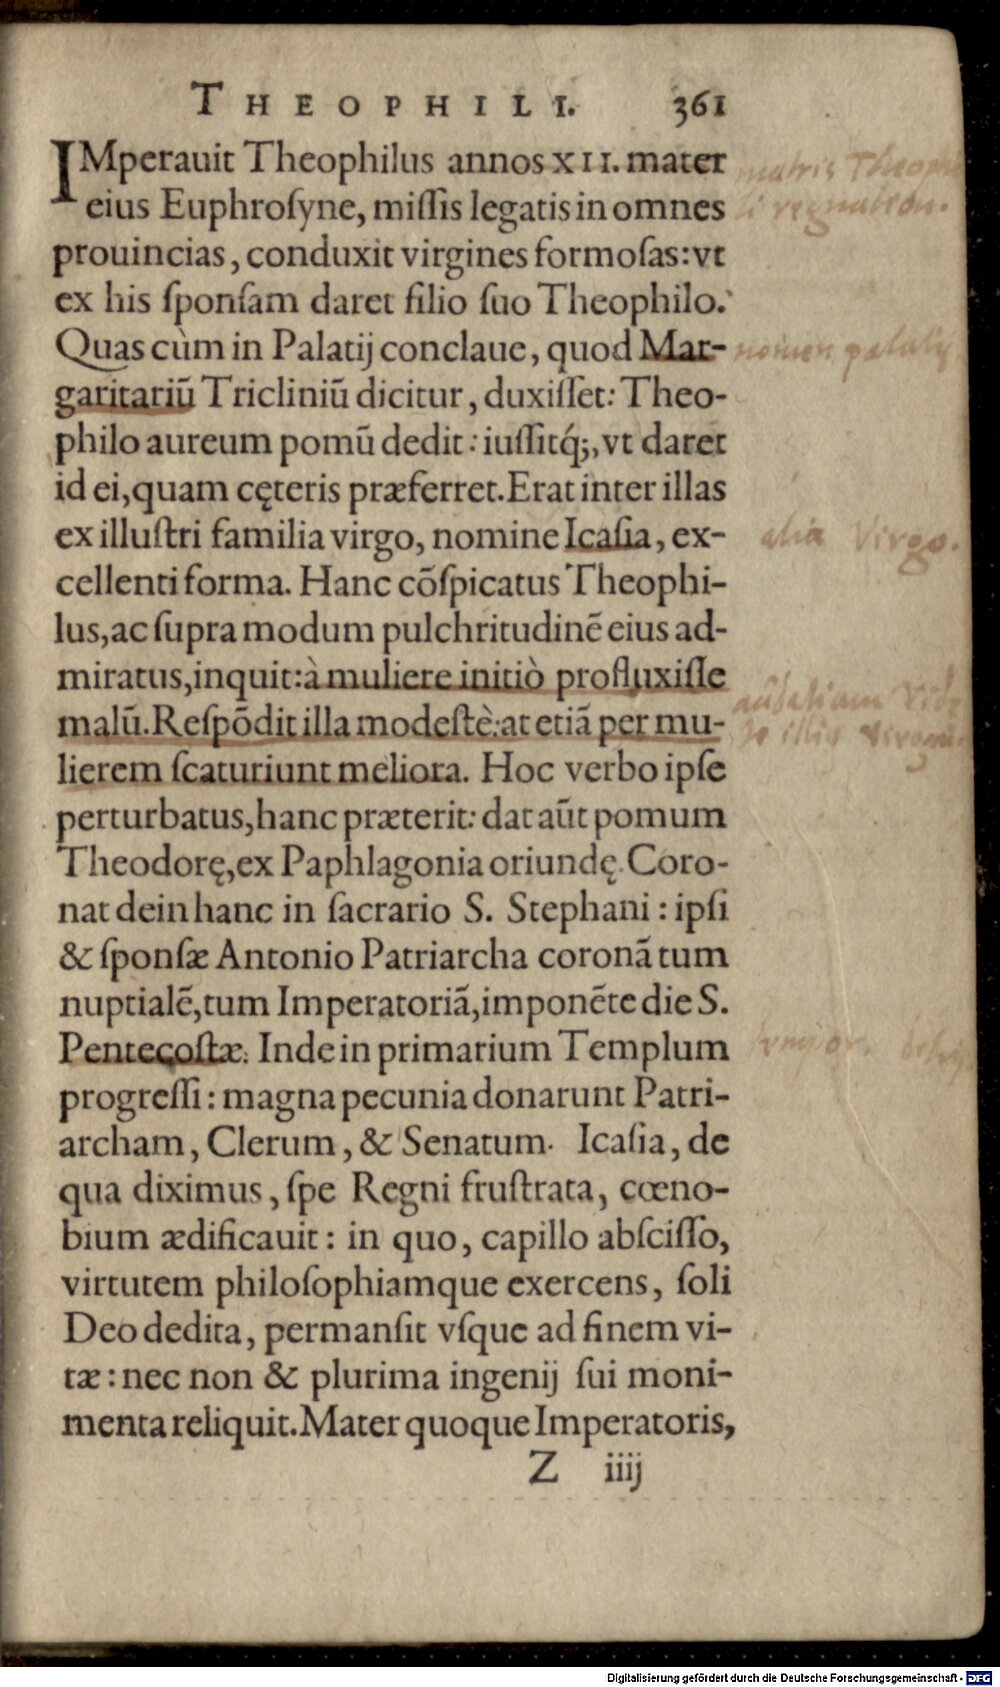 THEOPHILI. 361
IMperauit Theophilus annos XII. mater
eius Euphroſyne, miſſis legatis in omnes
prouincias, conduxit virgines formoſas: vt
ex his ſponſam daret filio ſuo Theophilo.
Quas cùm in Palatij conclaue, quod Mar-
garitariũ Tricliniũ dicitur, duxiſſet: Theo-
philo aureum pomũ dedit: iuſſitq́;, vt daret
id ei, quam cęteris præferret. Erat inter illas
ex illuſtri familia virgo, nomine Icaſia, ex-
cellenti forma. Hanc cõſpicatus Theophi-
lus, ac ſupra modum pulchritudinẽ eius ad-
miratus, inquit: à muliere initiò profluxiſſe
malũ. Reſpõdit illa modeſtè: at etiã per mu-
lierem ſcaturiunt meliora. Hoc verbo ipſe
perturbatus, hanc præterit: dat aũt pomum
Theodorę, ex Paphlagonia oriundę. Coro-
nat dein hanc in ſacrario S. Stephani: ipſi
& ſponſæ Antonio Patriarcha coronã tum
nuptialẽ, tum Imperatoriã, imponẽte die S.
Pentecoſtæ. Inde in primarium Templum
progreſſi: magna pecunia donarunt Patri-
archam, Clerum, & Senatum. Icaſia, de
qua diximus, ſpe Regni fruſtrata, cœno-
bium ædificauit: in quo, capillo abſciſſo,
virtutem philoſophiamque exercens, ſoli
Deo dedita, permanſit vſque ad finem vi-
tæ: nec non & plurima ingenij ſui moni-
menta reliquit. Mater quoque Imperatoris,
Z iiij
matris
nomen palatij
alia Virgo.
Digitalisierung gefördert durch die Deutsche Forschungsgemeinschaft - DFG